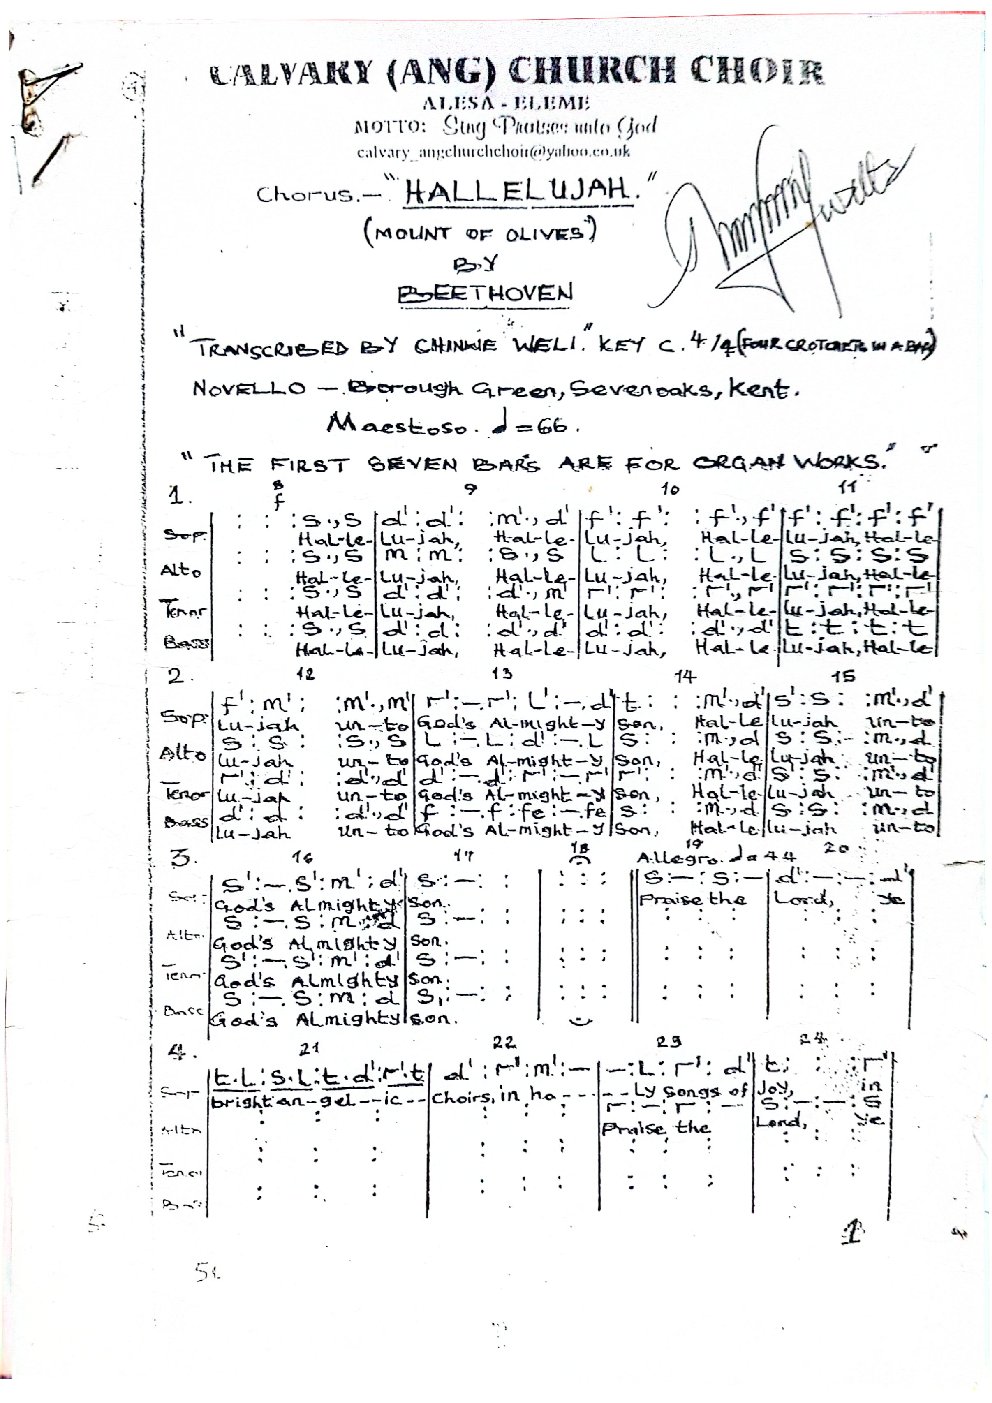 CALVARY (ANG) CHURCH CHOIR
ALESA - ELEME
MOTTO: Sing Praises unto God
calvary_angchurchchoir@yahoo.co.uk
Chorus.- "HALLELUJAH."
(MOUNT OF OLIVES)
BY
BEETHOVEN
"TRANSCRIBED BY CHINKIE WELI." KEY C. 4/4 (FOUR CROTCHETS IN A BAR)
NOVELLO - Borough Green, Sevenoaks, Kent.
Maestoso. ♩=66.
"THE FIRST SEVEN BARS ARE FOR ORGAN WORKS."
1. 8 9 10 11
f
Sop. : : :s.,s|d':d': :m'.,d'|f':f': :f'.,f'|f':f':f':f'
Hal-le-|Lu-jah, Hal-le-|Lu-jah, Hal-le|lu-jah, Hal-le
Alto : : :s.,s|m:m: :s.,s|L:L: :L.,L|s:s:s:s
Hal-le-|Lu-jah, Hal-le-|Lu-jah, Hal-le|lu-jah, Hal-le
Tenor : : :s.,s|d':d': :d'.,m'|r':r': :r'.,r'|r':r':r':r'
Hal-le-|Lu-jah, Hal-le-|Lu-jah, Hal-le|lu-jah, Hal-le
Bass : : :s.,s|d':d: :d'.,d'|d':d': :d'.,d'|t:t:t:t
Hal-le-|Lu-jah, Hal-le-|Lu-jah, Hal-le|lu-jah, Hal-le
2. 12 13 14 15
Sop. f':m': :m'.,m'|r':-.r':L':-.d'|t: : :m'.,d'|s':s': :m'.,d'
Lu-jah un-to|God's Al-might-y|Son, Hal-le|lu-jah un-to
Alto s:s: :s.,s|L:-.L:d':-.L|s: : :m.,d|s:s:- :m.,d
Lu-jah un-to|God's Al-might-y|Son, Hal-le|lu-jah un-to
Tenor r':d': :d'.,d'|d':-.d':r':-.r'|r': : :m'.,d'|s':s': :m'.,d'
Lu-jah un-to|God's Al-might-y|Son, Hal-le|lu-jah un-to
Bass d':d': :d'.,d'|f:-.f:fe:-.fe|s: : :m.,d|s:s: :m.,d
Lu-jah un-to|God's Al-might-y|Son, Hal-le|lu-jah un-to
3. 16 17 18 19 20
Allegro. ♩=144
s':-.s':m':d'|s:-: :|: : :|s:-:s:-|d':-:-:d'
God's Almighty|Son. Praise the Lord, Ye
Alto s:-.s:m:d|s:-: :
God's Almighty|Son.
s':-.s':m':d'|s:-: :
God's Almighty|Son.
Bass s:-.s:m:d|s,:-: :
God's Almighty|Son.
4. 21 22 23 24
Sop t.L:s.L:t.d':r'.t|d':r':m':-|-:L:r':d'|t: : :r'
bright an-gel--ic--|Choirs, in ho-----|--ly songs of|joy, in
Alto r:-:r:-|s:-:-:s
Praise the|Lord, Ye
Tenor
Bass
1